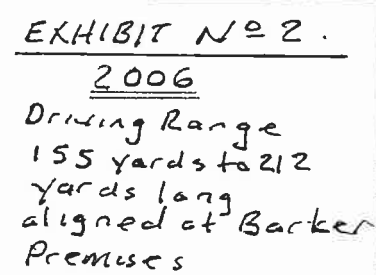 EXHIBIT Nº 2.
2006
Driving Range
155 yards to 212
yards long
aligned at Barker
Premises